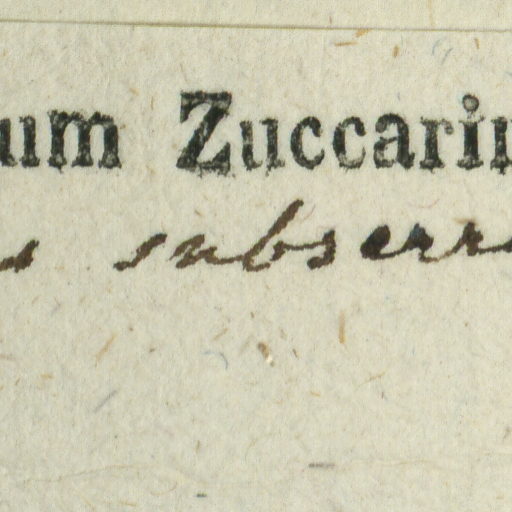 um Zuccarin
s subserr